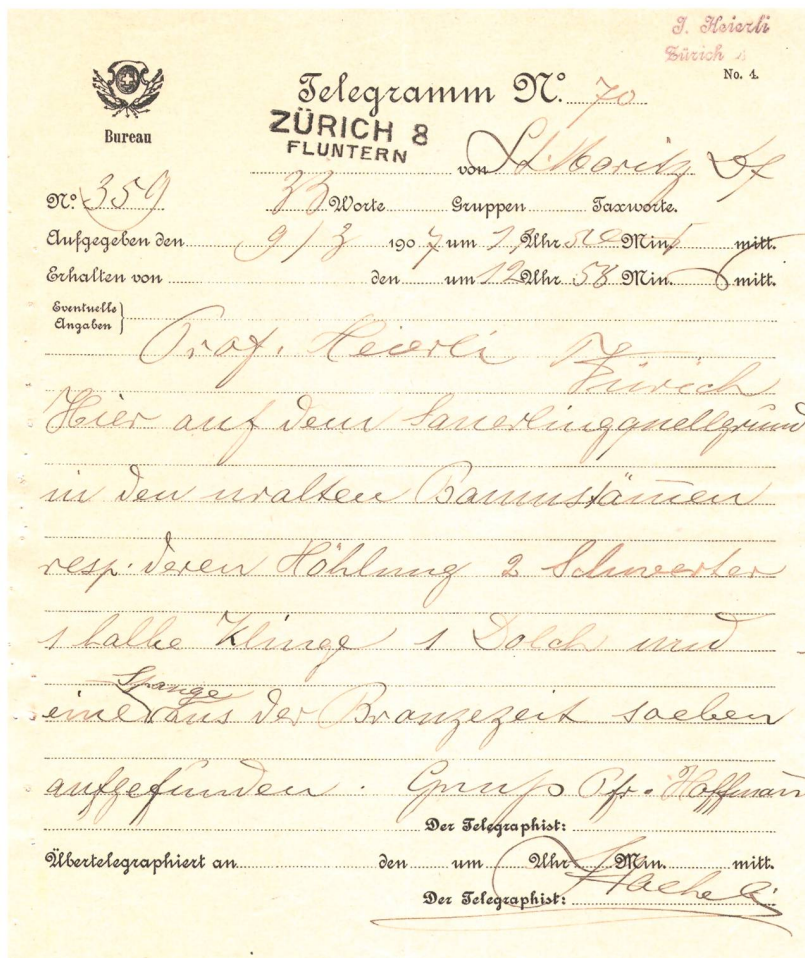 J. Heierli
Zürich
No. 4.
Telegramm No. 70
Bureau
ZÜRICH 8
FLUNTERN
von St. Moritz Df
No. 359 33 Worte Gruppen Taxworte.
Aufgegeben den 9/3 1907 um Uhr Min. mitt.
Erhalten von den um 12 Uhr 58 Min. mitt.
Eventuelle
Angaben
Prof. Heierli Zürich
Hier auf dem Sauerlingquellgrund
in den uralten Baumstämen
resp. deren Höhlung 2 Schwerter
1 halbe Klinge 1 Dolch und
Spange
eine aus der Bronzezeit soeben
aufgefunden. Gruss Pfr. Hoffmann
Der Telegraphist:
Übertelegraphiert an den um Uhr Min. mitt.
Der Telegraphist: